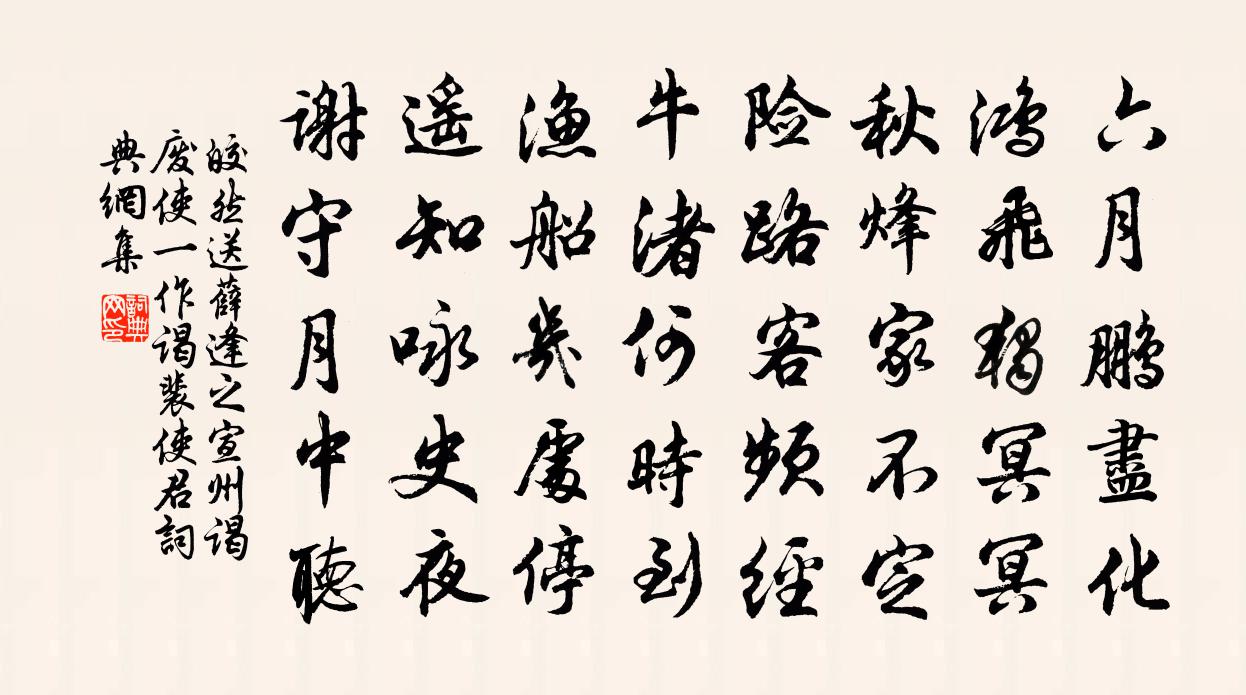 六月鹏盡化
鸿飛獨冥冥
秋烽家不定
险路客頻經
牛渚何時到
漁船幾處停
遥知咏史夜
谢守月中聽
皎然送薛逢之宣州谒
废使一作谒裴使君詞
典網集
詞典网印